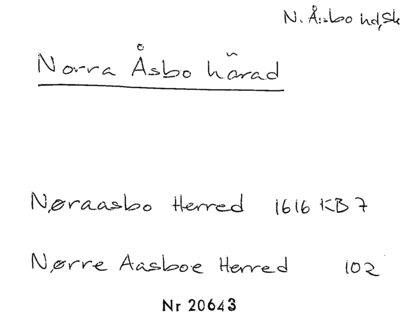 N. Åsbo hd, Sk
Norra Åsbo härad
Nøraasbo Herred 1616 KB 7
Nørre Aasboe Herred 102
Nr 20643